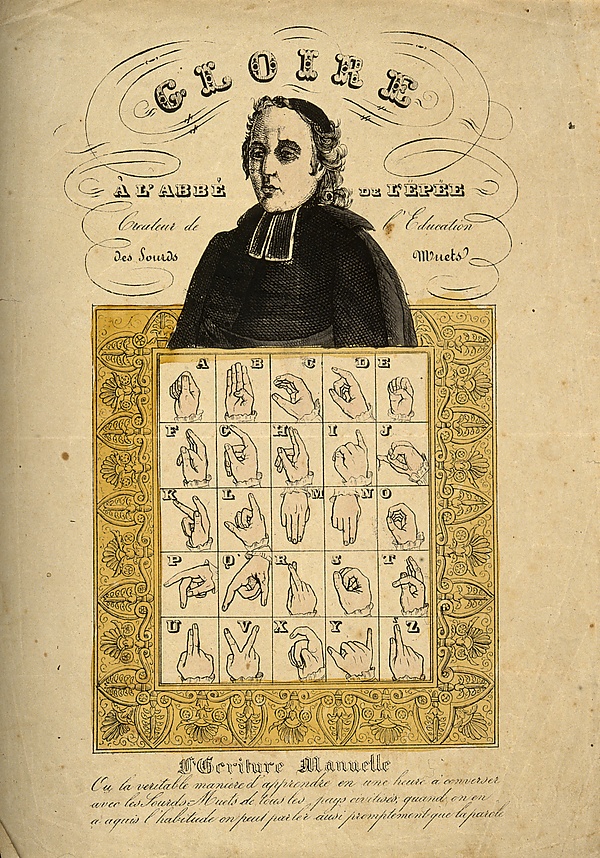 GLOIRE
À L'ABBÉ DE L'ÉPÉE
Createur de l'Education
des Sourds Muets
A B C D E
F G H I J
K L M N O
P Q R S T
U V X Y Z
l'Ecriture Manuelle
Ou la veritable maniere d'apprendre en une heure à converser
avec les Sourds-Muets de tous les pays civilisés, quand on en
a aquis l'habitude on peut parler aussi promptement que la parole